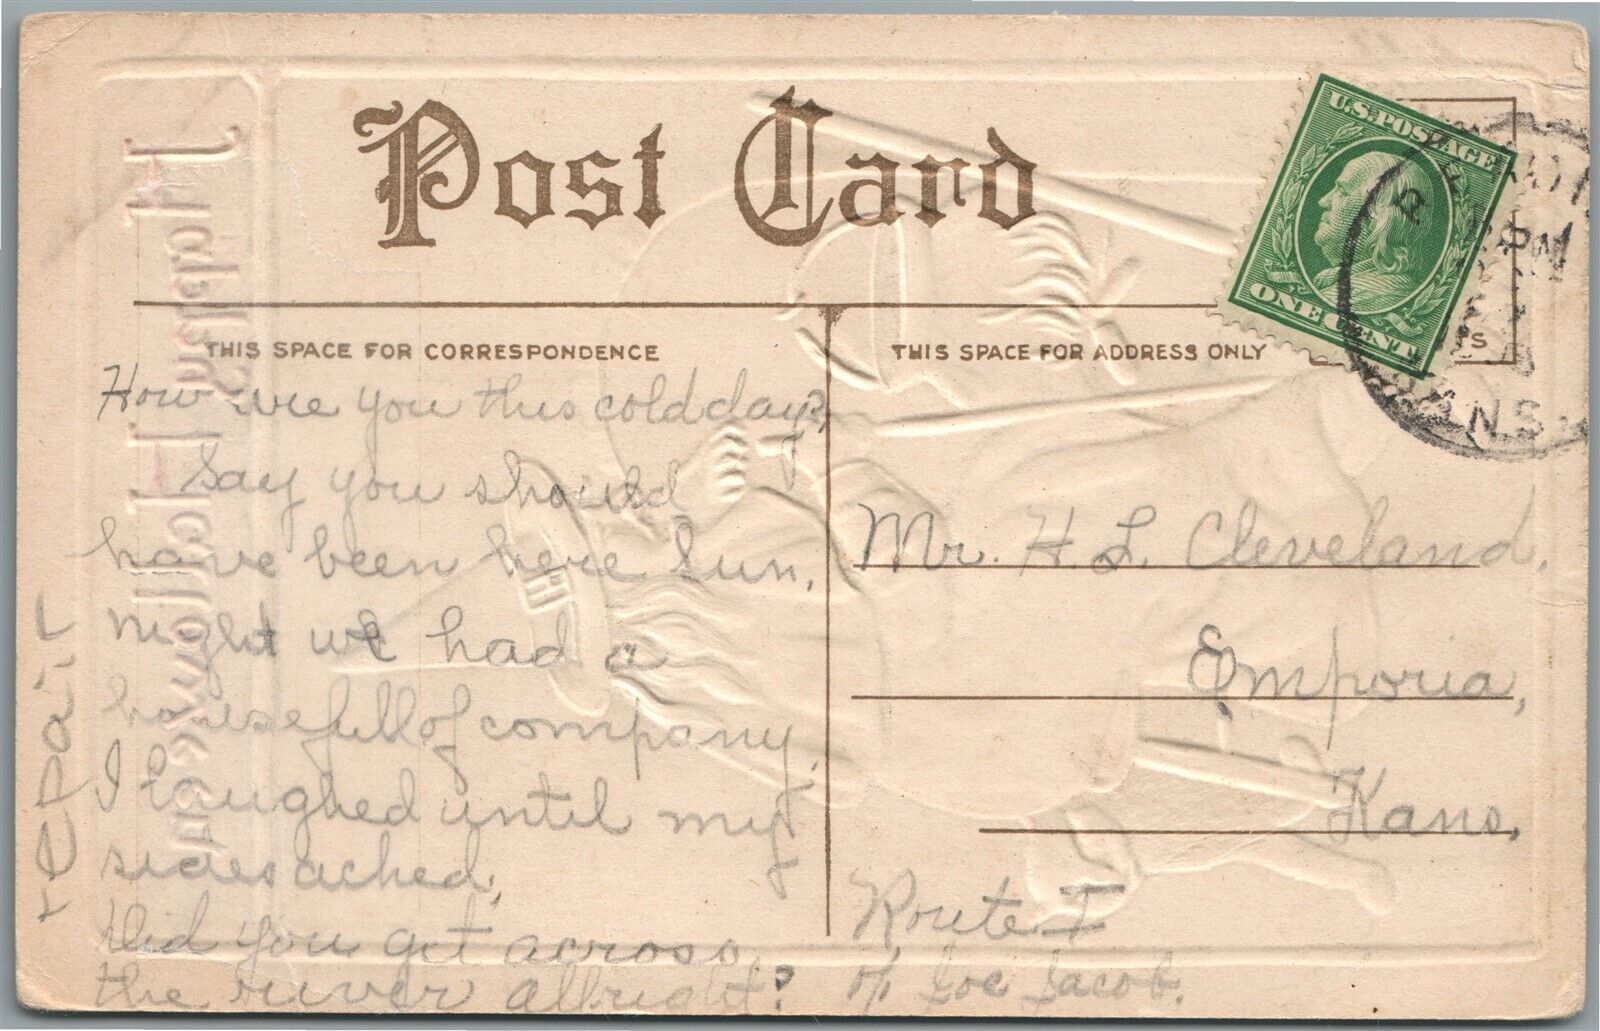 Post Card
U.S. POSTAGE
ONE CENT
PM
KANS.
THIS SPACE FOR CORRESPONDENCE
THIS SPACE FOR ADDRESS ONLY
How are you this cold day?
Say you should
have been here Sun.
night we had a
housefull of company.
I laughed until my
sides ached.
Did you get across
the river allright?
Mr. H. L. Cleveland,
Emporia,
Kans.
Route I
c/o Joe Jacob.
repair
Hallowe'en